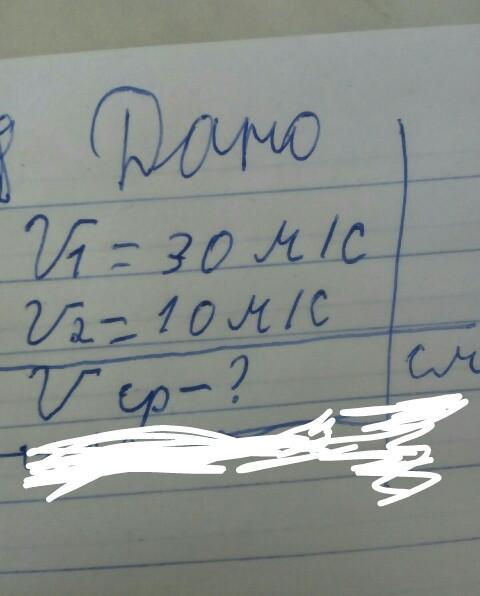 Дано
V1 = 30 м/с
V2 = 10 м/с
V ср - ?
см